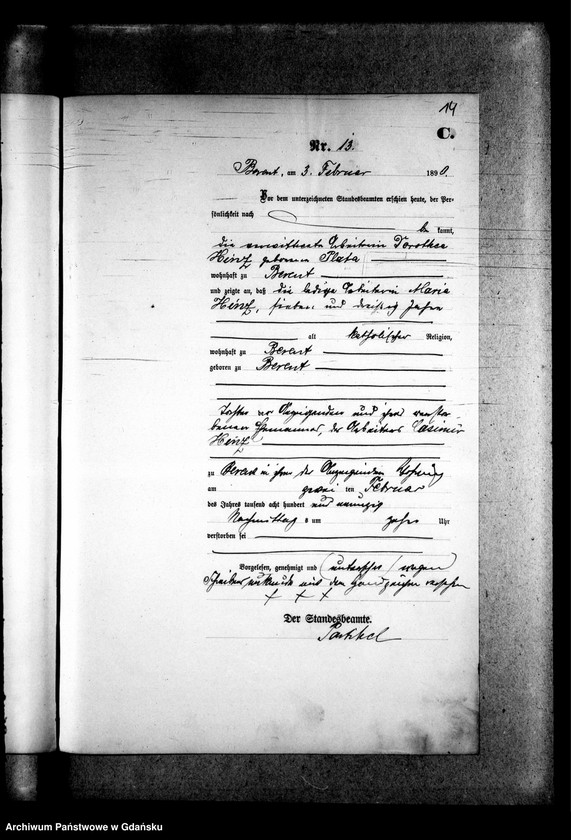 14
C.
Nr. 13.
Berent, am 3. Februar 1890.
Vor dem unterzeichneten Standesbeamten erschien heute, der Per-
sönlichkeit nach be kannt,
die verwittwete Arbeiterin Dorothea
Hinz geborene Plata
wohnhaft zu Berent
und zeigte an, daß die ledige Arbeiterin Maria
Hinz, sieben und dreißig Jahre
alt katholischer Religion,
wohnhaft zu Berent
geboren zu Berent
Tochter der Anzeigenden und ihres verstor
benen Ehemannes, des Arbeiters Casimir
Hinz
zu Berent in ihrer der Anzeigenden Wohnung
am zwei ten Februar
des Jahres tausend acht hundert und neunzig
Nachmittags um zehn Uhr
verstorben sei
Vorgelesen, genehmigt und wegen
Schreibensunkunde mit dem Handzeichen versehen
+ + +
Der Standesbeamte.
Archiwum Państwowe w Gdańsku